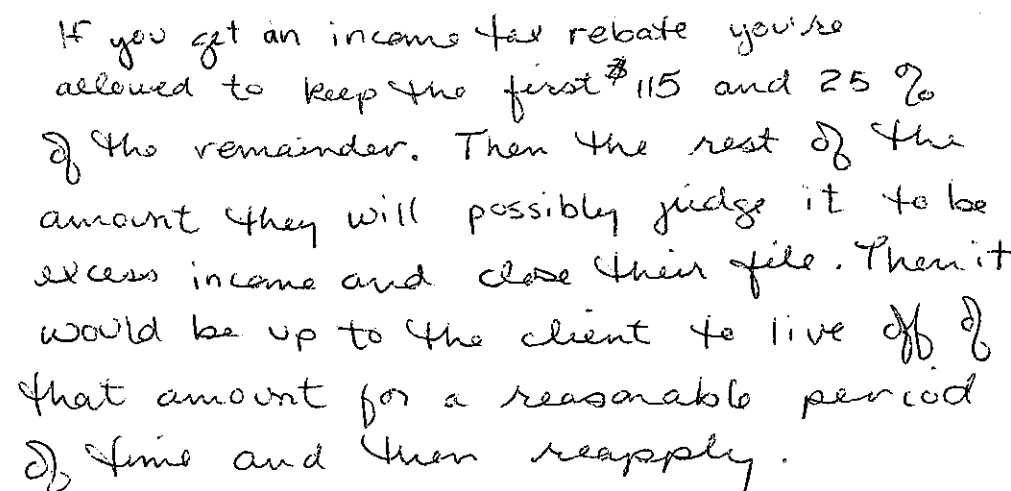 If you get an income tax rebate you're
allowed to keep the first $115 and 25%
of the remainder. Then the rest of the
amount they will possibly judge it to be
excess income and close their file. Then it
would be up to the client to live off of
that amount for a reasonable period
of time and then reapply.